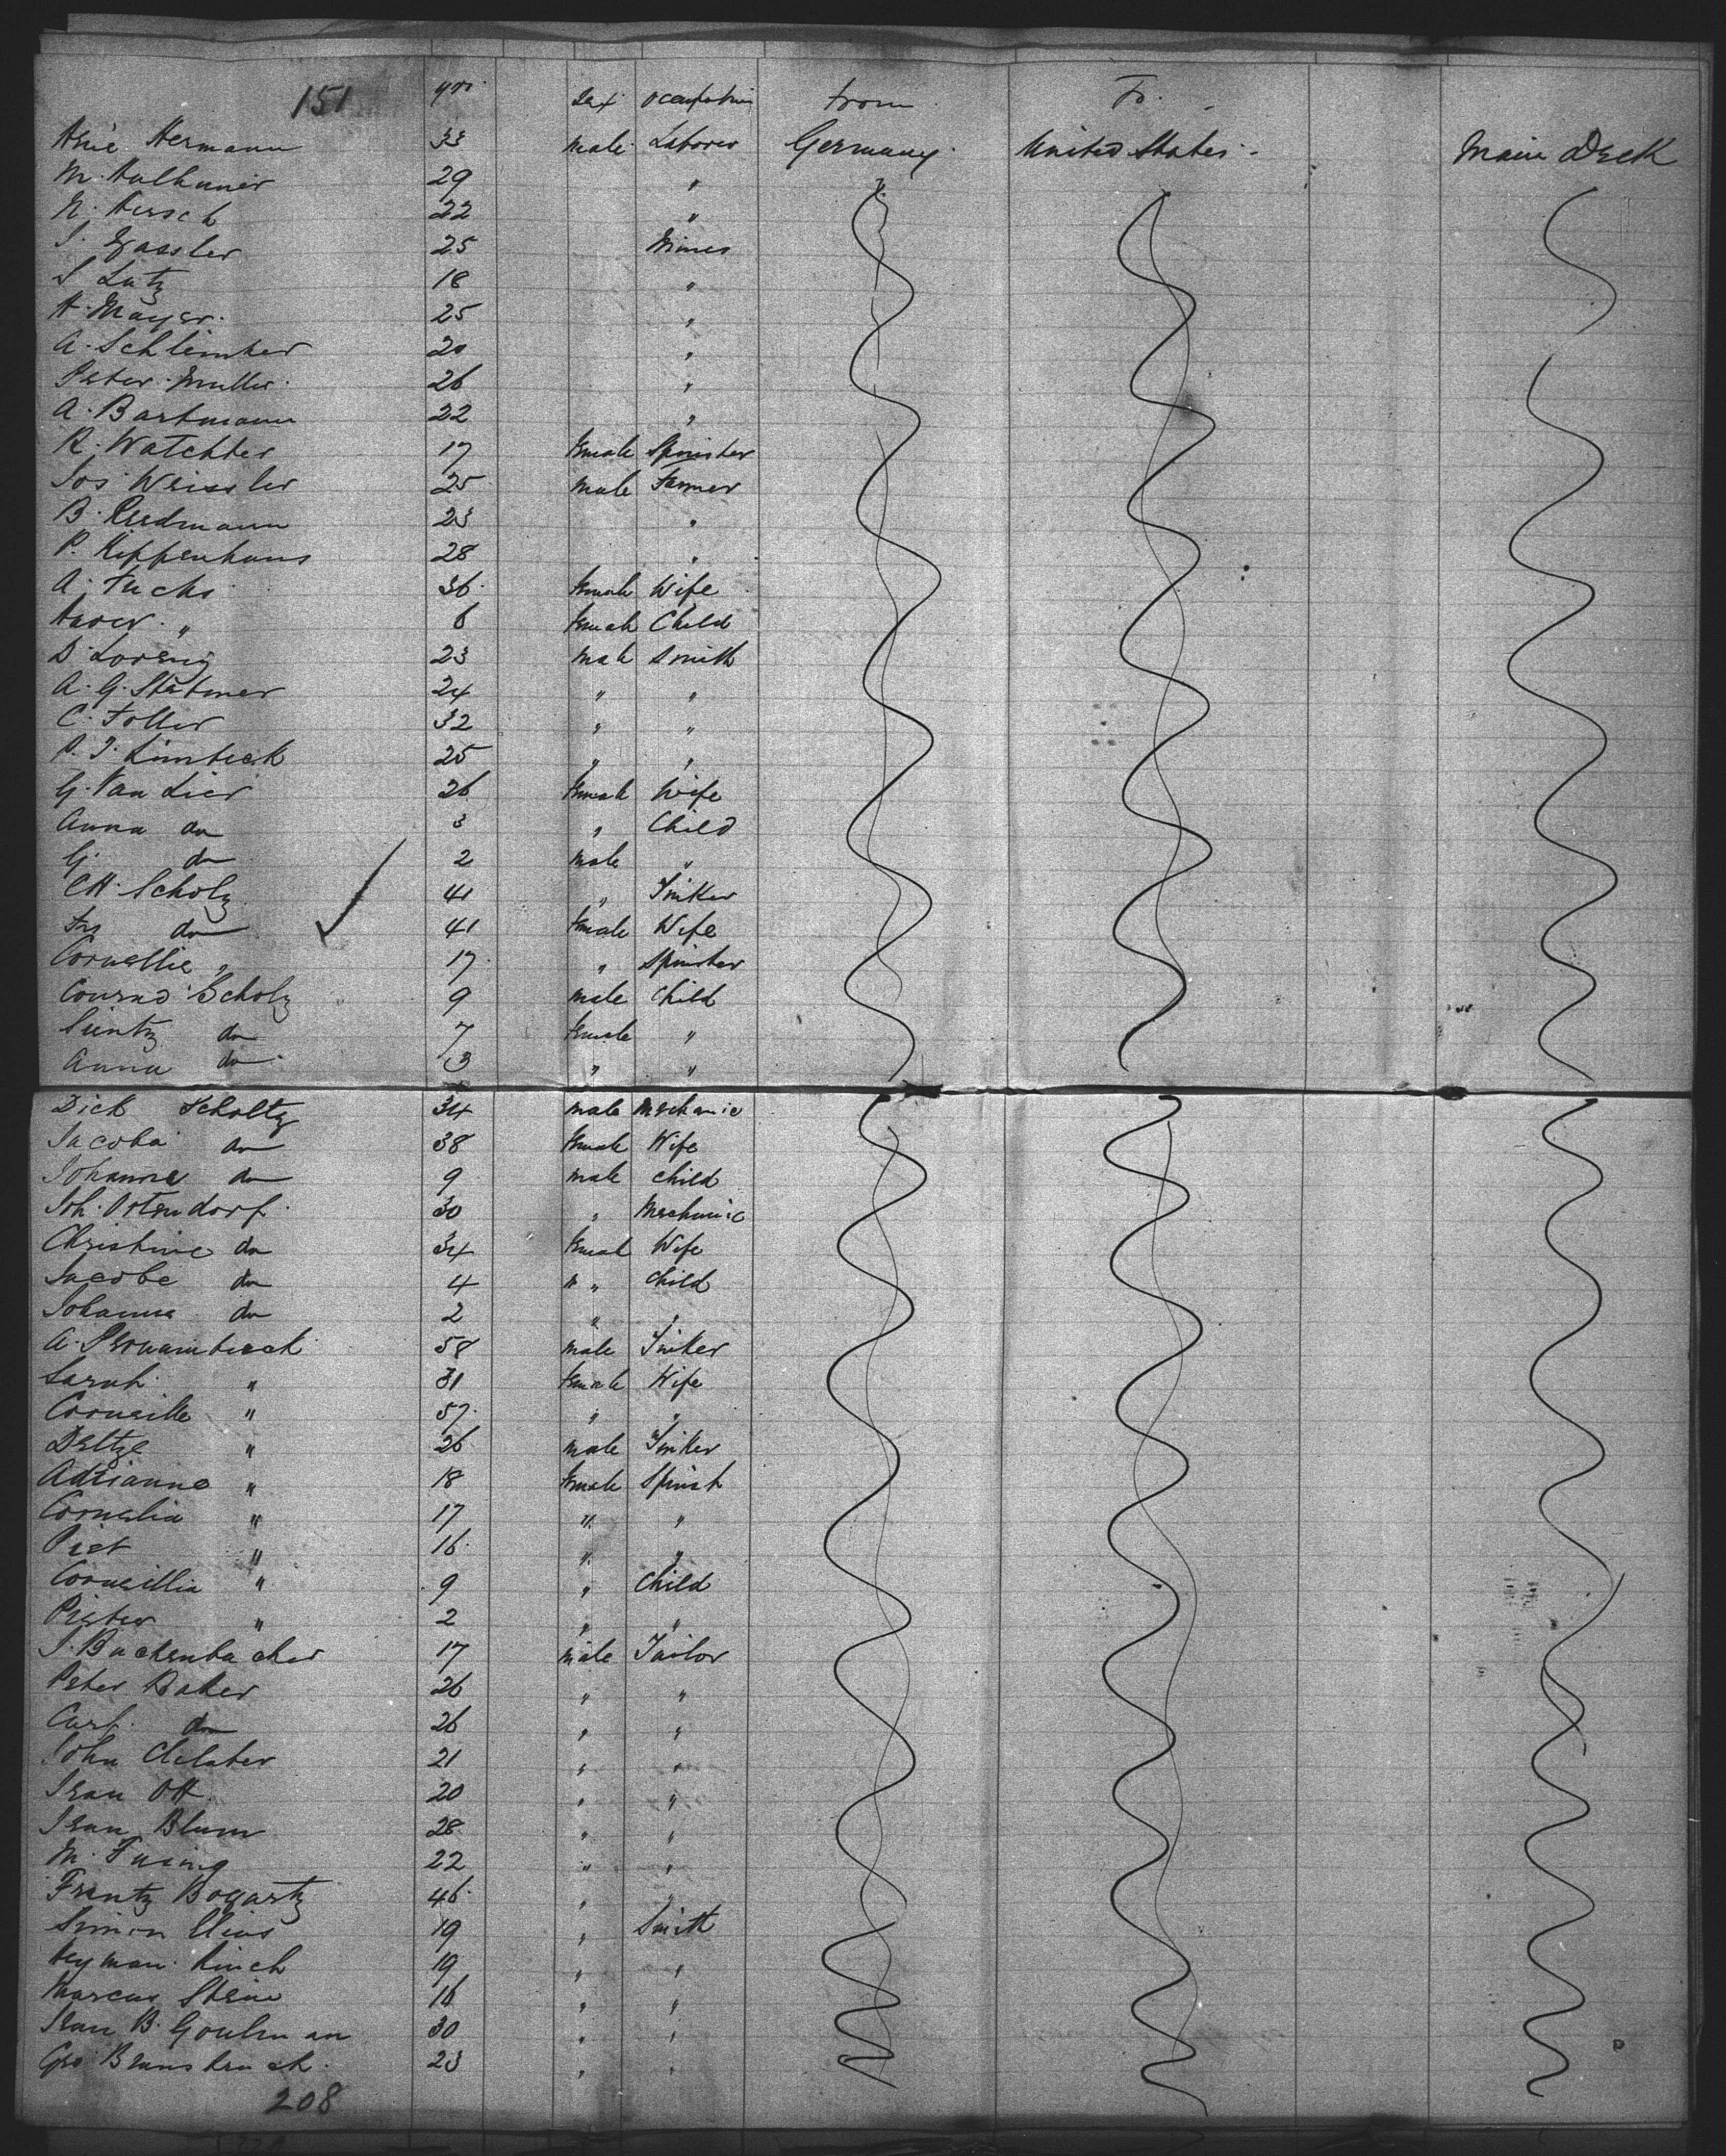 151 yrs. Sex occupation from To.
Hermann 33 male Laborer Germany United States Main Deck
M. 29 "
N. Hersch 22 "
J. Gassler 25 Miner
S Lutz 18 "
H. Mayer 25 "
A. Schleimher 20 "
Peter Muller 26 "
A. Bartmann 22 "
R. Watchter 17 female Spinster
Jos Weissler 25 male Farmer
B. Riedmann 23 "
P. Kippenhans 28 "
A. Fuchs 36 female Wife
" 6 female Child
D. Loreng 23 male Smith
A. G. Statmer 24 " "
C. Foller 32 " "
P. J. Limbeek 25 " "
G. Van Lier 26 female Wife
Anna do 3 " Child
G. do 2 male "
CH. Scholz 41 " Tinker
do 41 female Wife
Cornellie " 17 " Spinster
Conrad Scholz 9 male child
Sientz do 7 female "
Anna do 3 " "
Dick Scholtz 34 male Mechanic
Jacoba do 38 female Wife
Johanna do 9 male child
Joh. Ostendorf 30 " Mechanic
Christine do 34 female Wife
Jacobe do 4 " " child
Johanna do 2 " "
A. 58 male Tinker
Sarah " 31 female Wife
Corneille " 57 " "
Deltze " 26 male Tinker
Adrianne " 18 female Spinst
Cornelia " 17 " "
Piet " 16 " "
Corneillia " 9 " child
Pieter " 2 " "
J. Backenbacher 17 male Tailor
Peter Baker 26 " "
Carl do 26 " "
John 21 " "
Jean Ott 20 " "
Jean Blum 28 " "
M. Fusing 22 " "
Frantz Bogartz 46 "
Simon Elias 19 " Smith
Heyman Hirsch 19 " "
Marcus Stein 16 " "
Jean B. Goulman 30 " "
Geo 23 " "
208